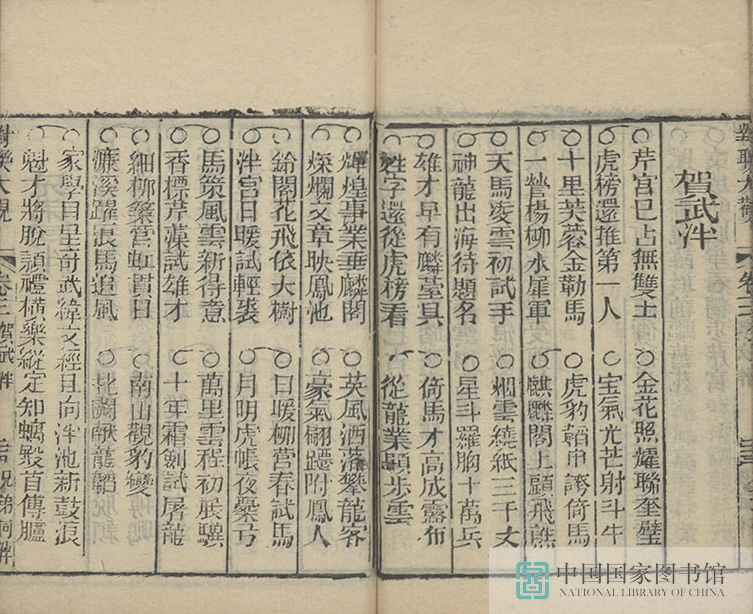 對聯大觀 卷三
賀武泮
芹宮已占無雙士 金花照耀聯奎璧
虎榜還推第一人 宝氣光芒射斗牛
十里芙蓉金勒馬 虎豹韜中誇倚馬
一營楊柳水星軍 麒麟閣上顯飛熊
天馬凌雲初試手 烟雲繞紙三千丈
神龍出海待題名 星斗羅胸十萬兵
雄才早有麟臺具 倚馬才高成露布
姓字還從虎榜看 從龍業顯步雲
輝煌事業垂麟閣 英風洒落攀龍客
燦爛文章映鳳池 豪氣翩躚附鳳人
鈴閣花飛依大樹 日暖柳營春試馬
泮宮日暖試輕裘 月明虎帳夜櫜弓
馬策風雲新得意 萬里雲程初展驥
香標芹藻試雄才 十年霜劍試屠龍
細柳築營虹貫日 南山觀豹變
濂溪躍浪馬追風 北闕獻龍韜
家學自星奇武緯文經且向泮池新鼓浪
魁才將脫頴禮橫樂縱定知螭殿首傳臚
對聯大觀 卷三 賀武泮 兄弟同泮
中国国家图书馆
NATIONAL LIBRARY OF CHINA